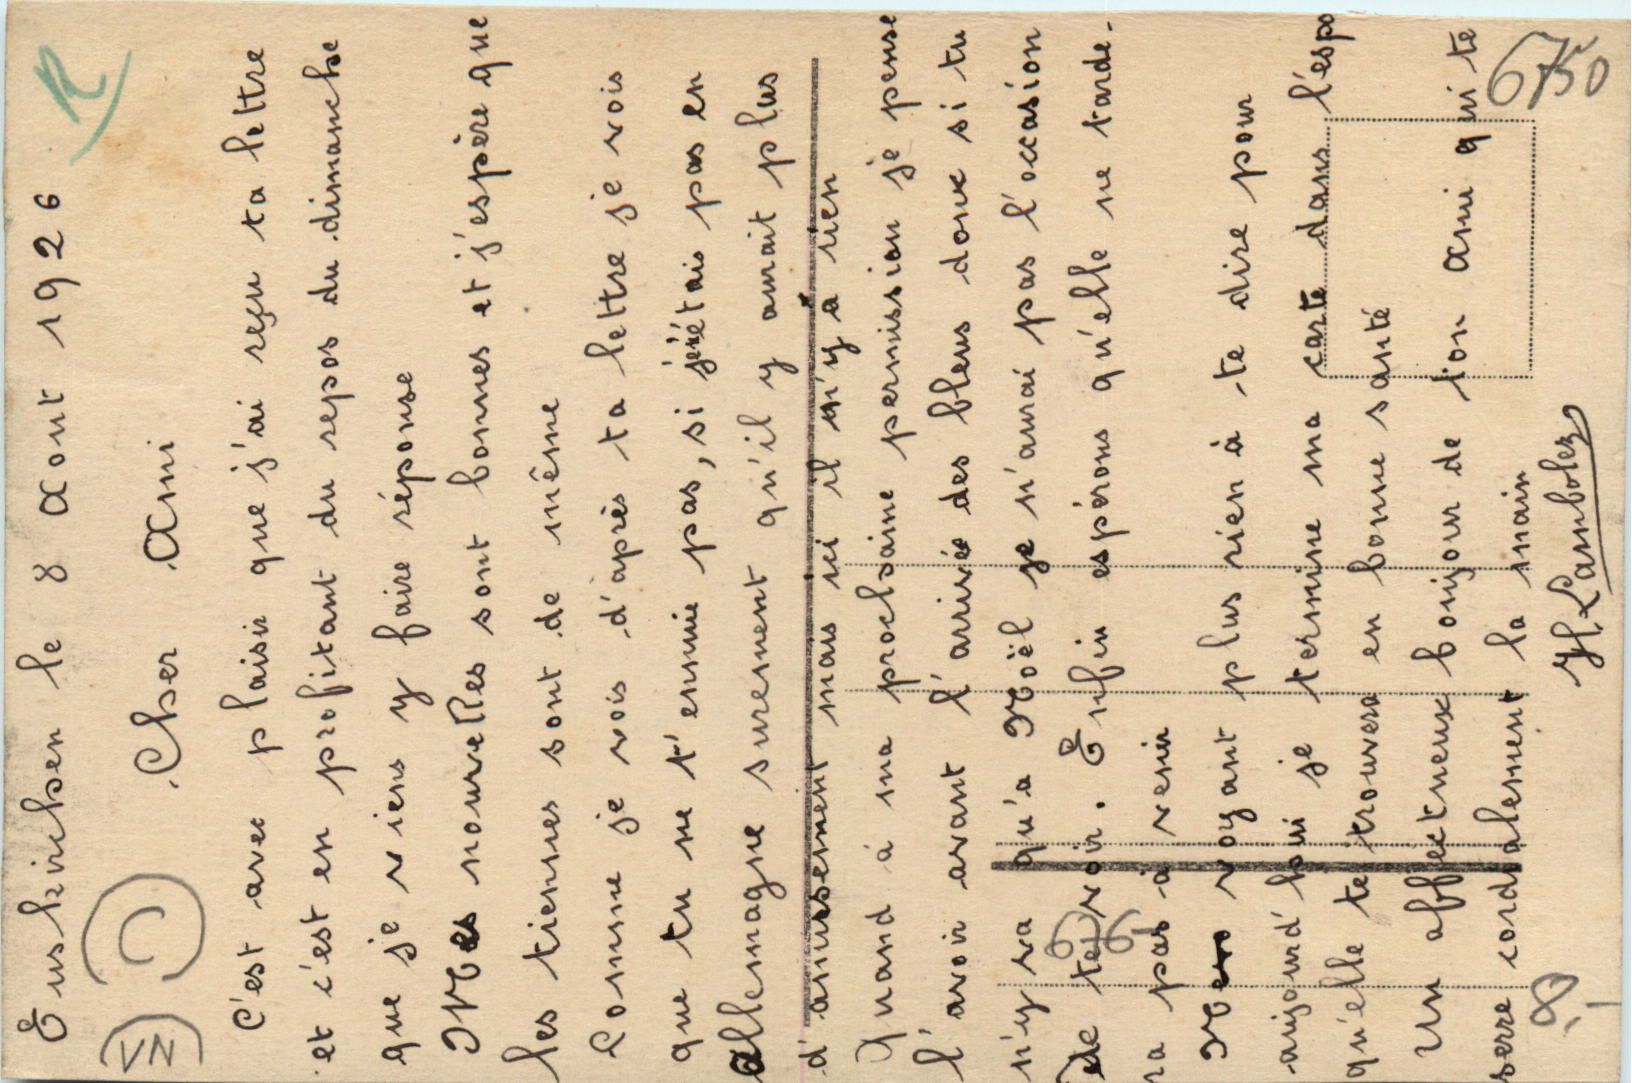 Euskirchen le 8 Aout 1926
Cher Ami
C'est avec plaisir que j'ai reçu ta lettre
et c'est en profitant du repos du dimanche
que je viens y faire réponse
Mes nouvelles sont bonnes et j'espère que
les tiennes sont de même
Comme je vois d'après ta lettre je vois
que tu ne t'ennuie pas, si j'étais pas en
Allemagne surement qu'il y aurait plus
d'amusement mais ici il n'y a rien
Quand à ma prochaine permission je pense
l'avoir avant l'arrivée des bleus donc si tu
n'y va qu'a Noël je n'aurai pas l'occasion
de te voir. Enfin espérons qu'elle ne tarde-
ra pas à venir
Ne voyant plus rien à te dire pour
aujourd'hui je termine ma carte dans l'espo
qu'elle te trouvera en bonne santé
Un affectueux bonjour de ton ami qui te
serre cordialement la main
H. Lambolez
R
VZ
6750
8,-
6,-